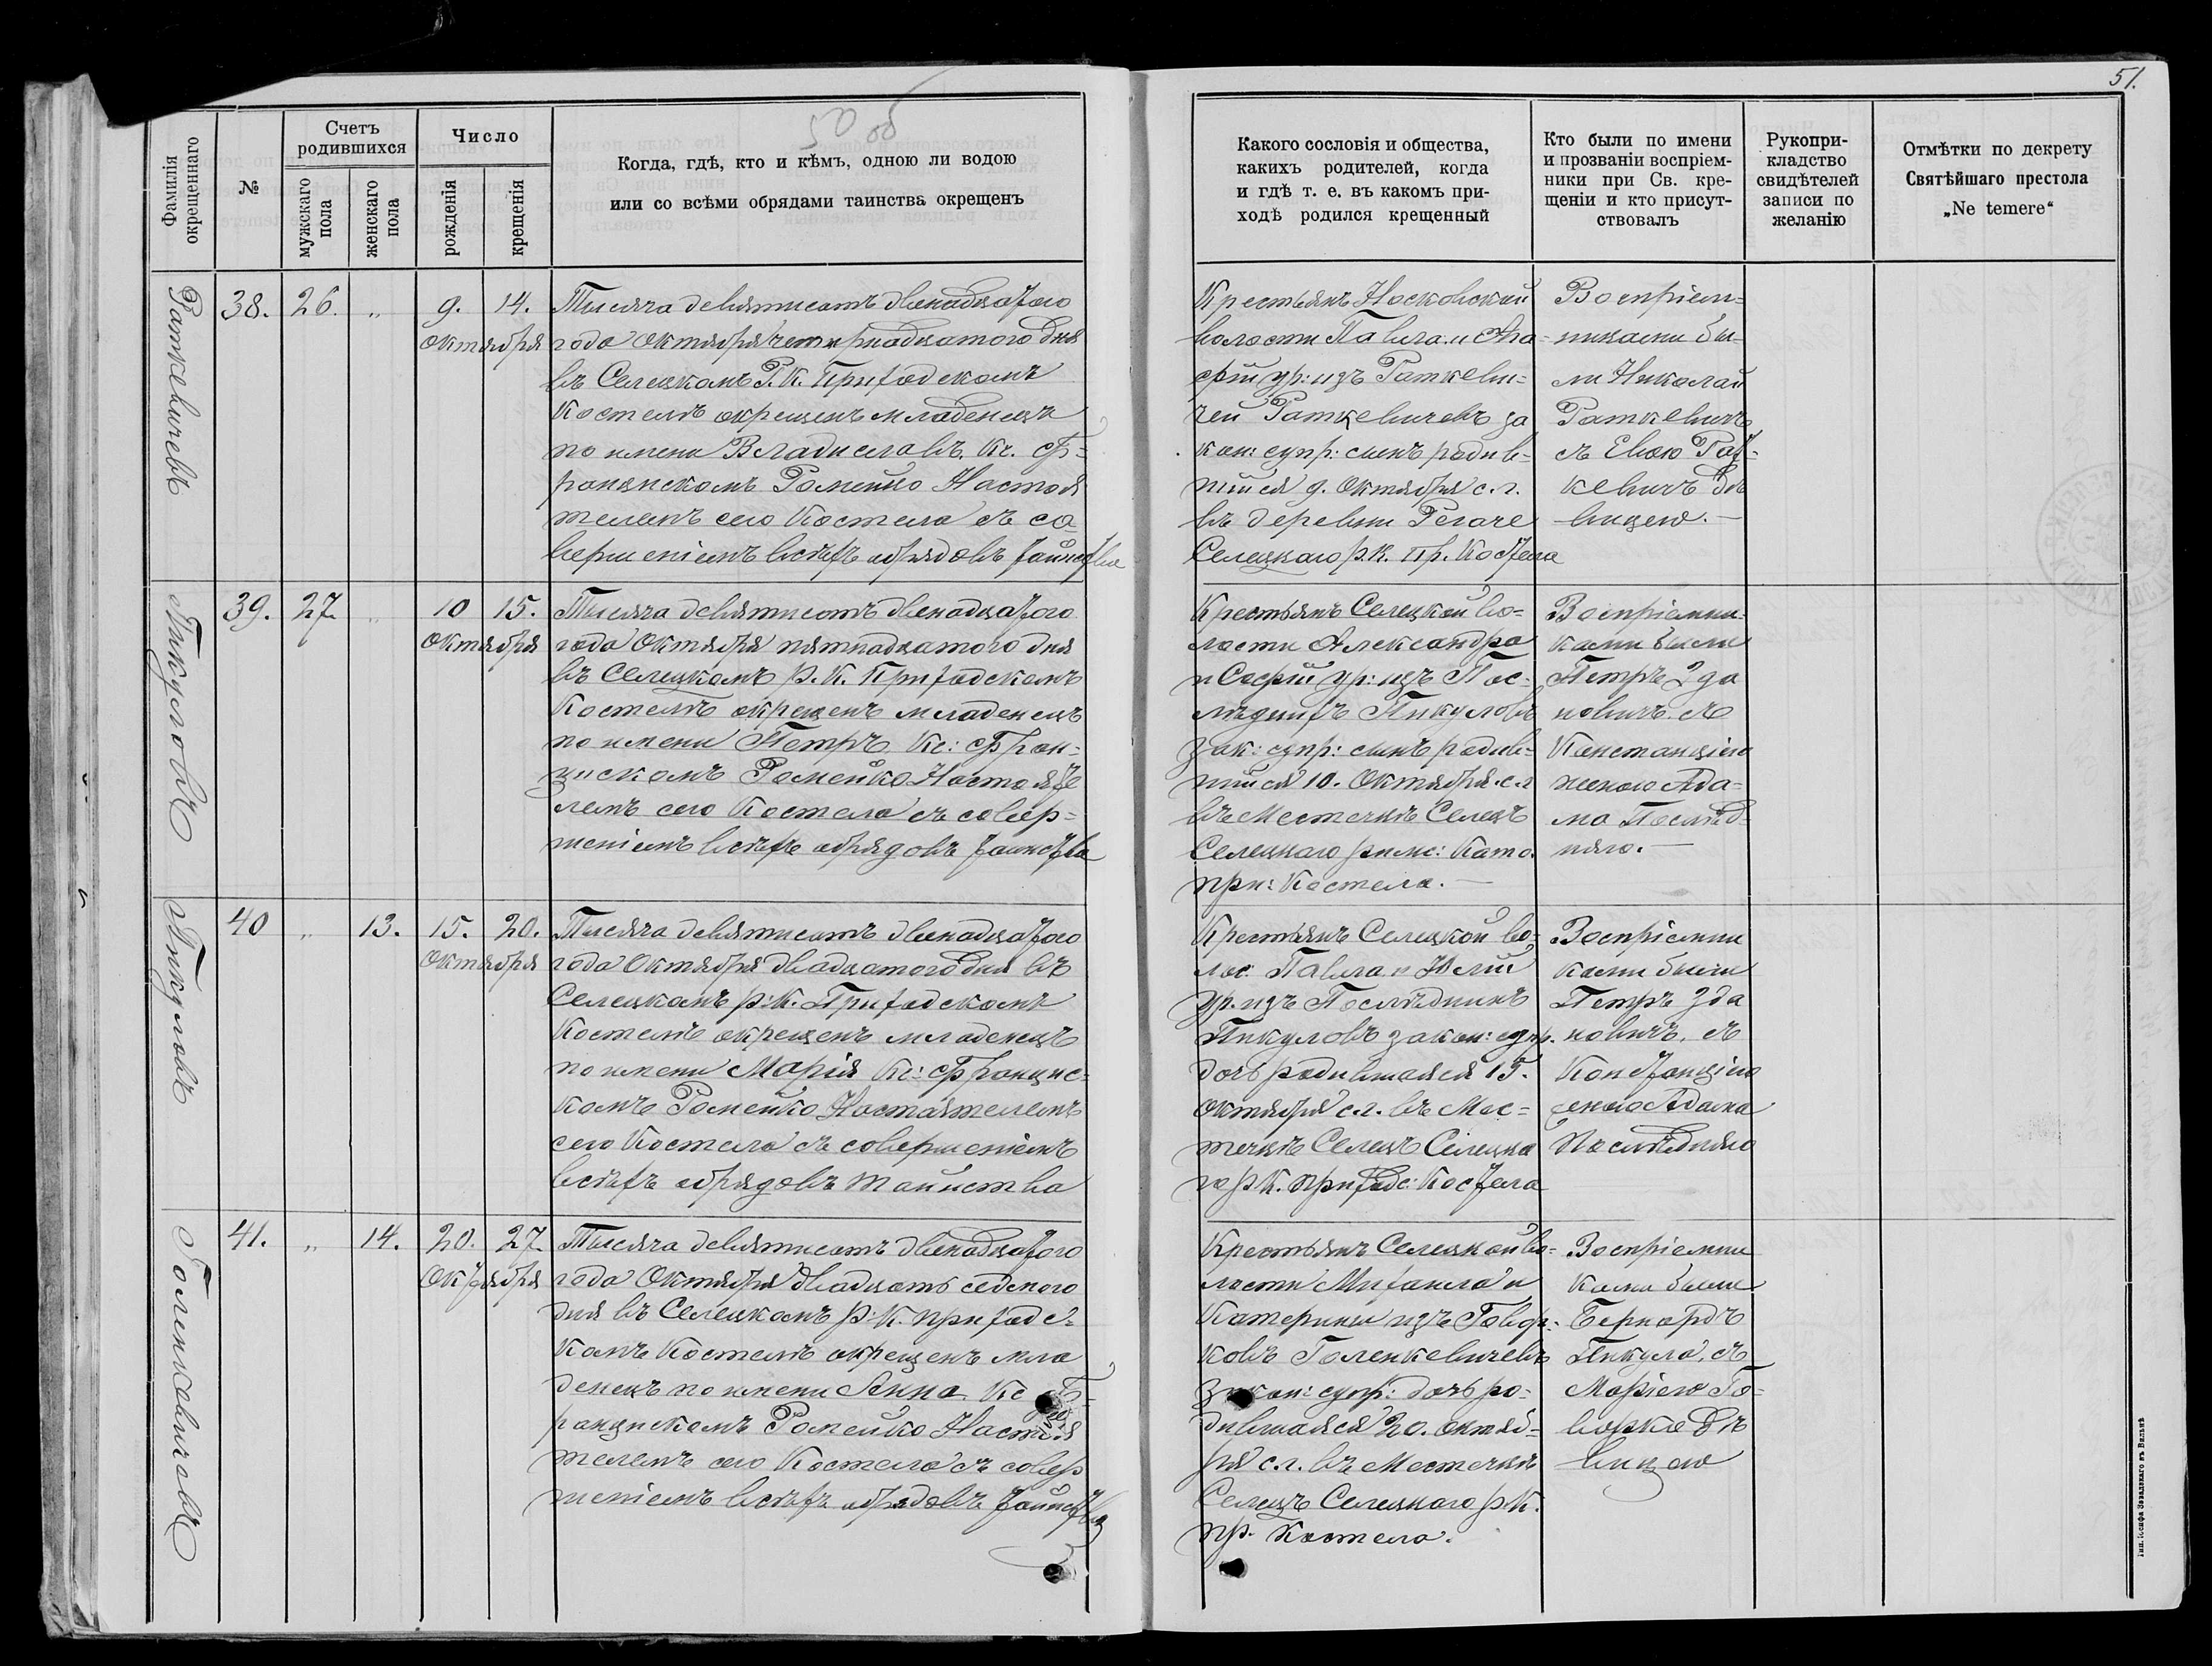 50 об
51.
Фамилія окрещеннаго
№
Счетъ родившихся
мужскаго пола
женскаго пола
Число
рожденія
крещенія
Когда, гдѣ, кто и кѣмъ, одною ли водою
или со всѣми обрядами таинства окрещенъ
Какого сословія и общества,
какихъ родителей, когда
и гдѣ т. е. въ какомъ при-
ходѣ родился крещенный
Кто были по имени
и прозваніи воспріем-
ники при Св. кре-
щеніи и кто присут-
ствовалъ
Рукопри-
кладство
свидѣтелей
записи по
желанію
Отмѣтки по декрету
Святѣйшаго престола
„Ne temere“
Раткевичевъ
38. 26. „ 9. 14.
Октября
Тысяча девятисотъ двенадцатого
года Октября четырнадцатого дня
въ Селецкомъ Р. К. Приходскомъ
Костелѣ окрещенъ младенецъ
по имени Владиславъ, Кс. Ф-
ранцискомъ Ромейко Настоя
телемъ сего Костела съ со
вершеніемъ всѣхъ обрядовъ таинства
Крестьянъ
волости Павла и
ур: изъ Раткеви-
чей Раткевичевъ за
кон: супр: сынъ родив-
шійся 9. Октября с. г.
въ деревни
Селецкаго р. К. Пр. Костела
Воспріем-
никами бы-
ли Николай
Раткевичъ
съ Евою Рат-
кевичъ дѣ
вицею.
Пикуловъ
39. 27 „ 10 15.
Октября
Тысяча девятисотъ двенадцатого
года Октября пятнадцатого дня
въ Селецкомъ р. К. Приходскомъ
Костелѣ окрещенъ младенецъ
по имени Петръ. Кс: Фран-
цискомъ Ромейко Настояте
лемъ сего Костела съ совер-
шеніемъ всѣхъ обрядовъ таинства
Крестьянъ Селецкой во-
лости Александра
и Софіи ур: изъ Пос-
лѣднихъ Пикуловъ
зак: супр: сынъ родив-
шійся 10. Октября с. г
въ Местечкѣ Селецъ
Селецкаго римс: Като.
при: Костела.
Воспріемни-
ками были
Петръ Зда
новичъ съ
Констанціею
женою Ада-
ма Послѣд-
няго.
Пикуловъ
40 „ 13. 15. 20.
Октября
Тысяча девятисотъ двенадцатого
года Октября двадцатого дня въ
Селецкомъ р. К. Приходскомъ
Костелѣ окрещенъ младенецъ
по имени Марія Кс: Францис-
комъ Ромейко Настоятелемъ
сего Костела съ совершеніемъ
всѣхъ обрядовъ таинства
Крестьянъ Селецкой во-
лос: Павла и Юліи
ур. изъ Послѣднихъ
Пикуловъ закон: супр.
дочь родившаяся 15.
Октября с. г. въ Мес-
течкѣ Селецъ Селецка
го р К. приходс: Костела
Воспріемни
ками были
Петръ Зда
новичъ, съ
Констанціею
женою Адама
Послѣдняго
Голенкевичевъ
41. „ 14. 20. 27.
Октября
Тысяча девятисотъ двенадцатого
года Октября двадцать седмого
дня въ Селецкомъ р. К. приходс-
комъ Костелѣ окрещенъ мла
денецъ по имени Анна. Кс Ф-
ранцискомъ Ромейко Настоя
телемъ сего Костела съ совер
шеніемъ всѣхъ обрядовъ таинства
Крестьянъ Селецкой во-
лости Михаила и
Катерины изъ Говор-
ковъ Голенкевичевъ
закон: супр: дочь ро-
дившаяся 20. Октяб-
ря с. г. въ Местечкѣ
Селецъ Селецкаго р. К.
пр. Костела.
Воспріемни
ками были
Бернардъ
Пикула, съ
Маріею Го-
ворко дѣ
вицею
Тип. Іосифа Завадзкаго въ Вильнѣ